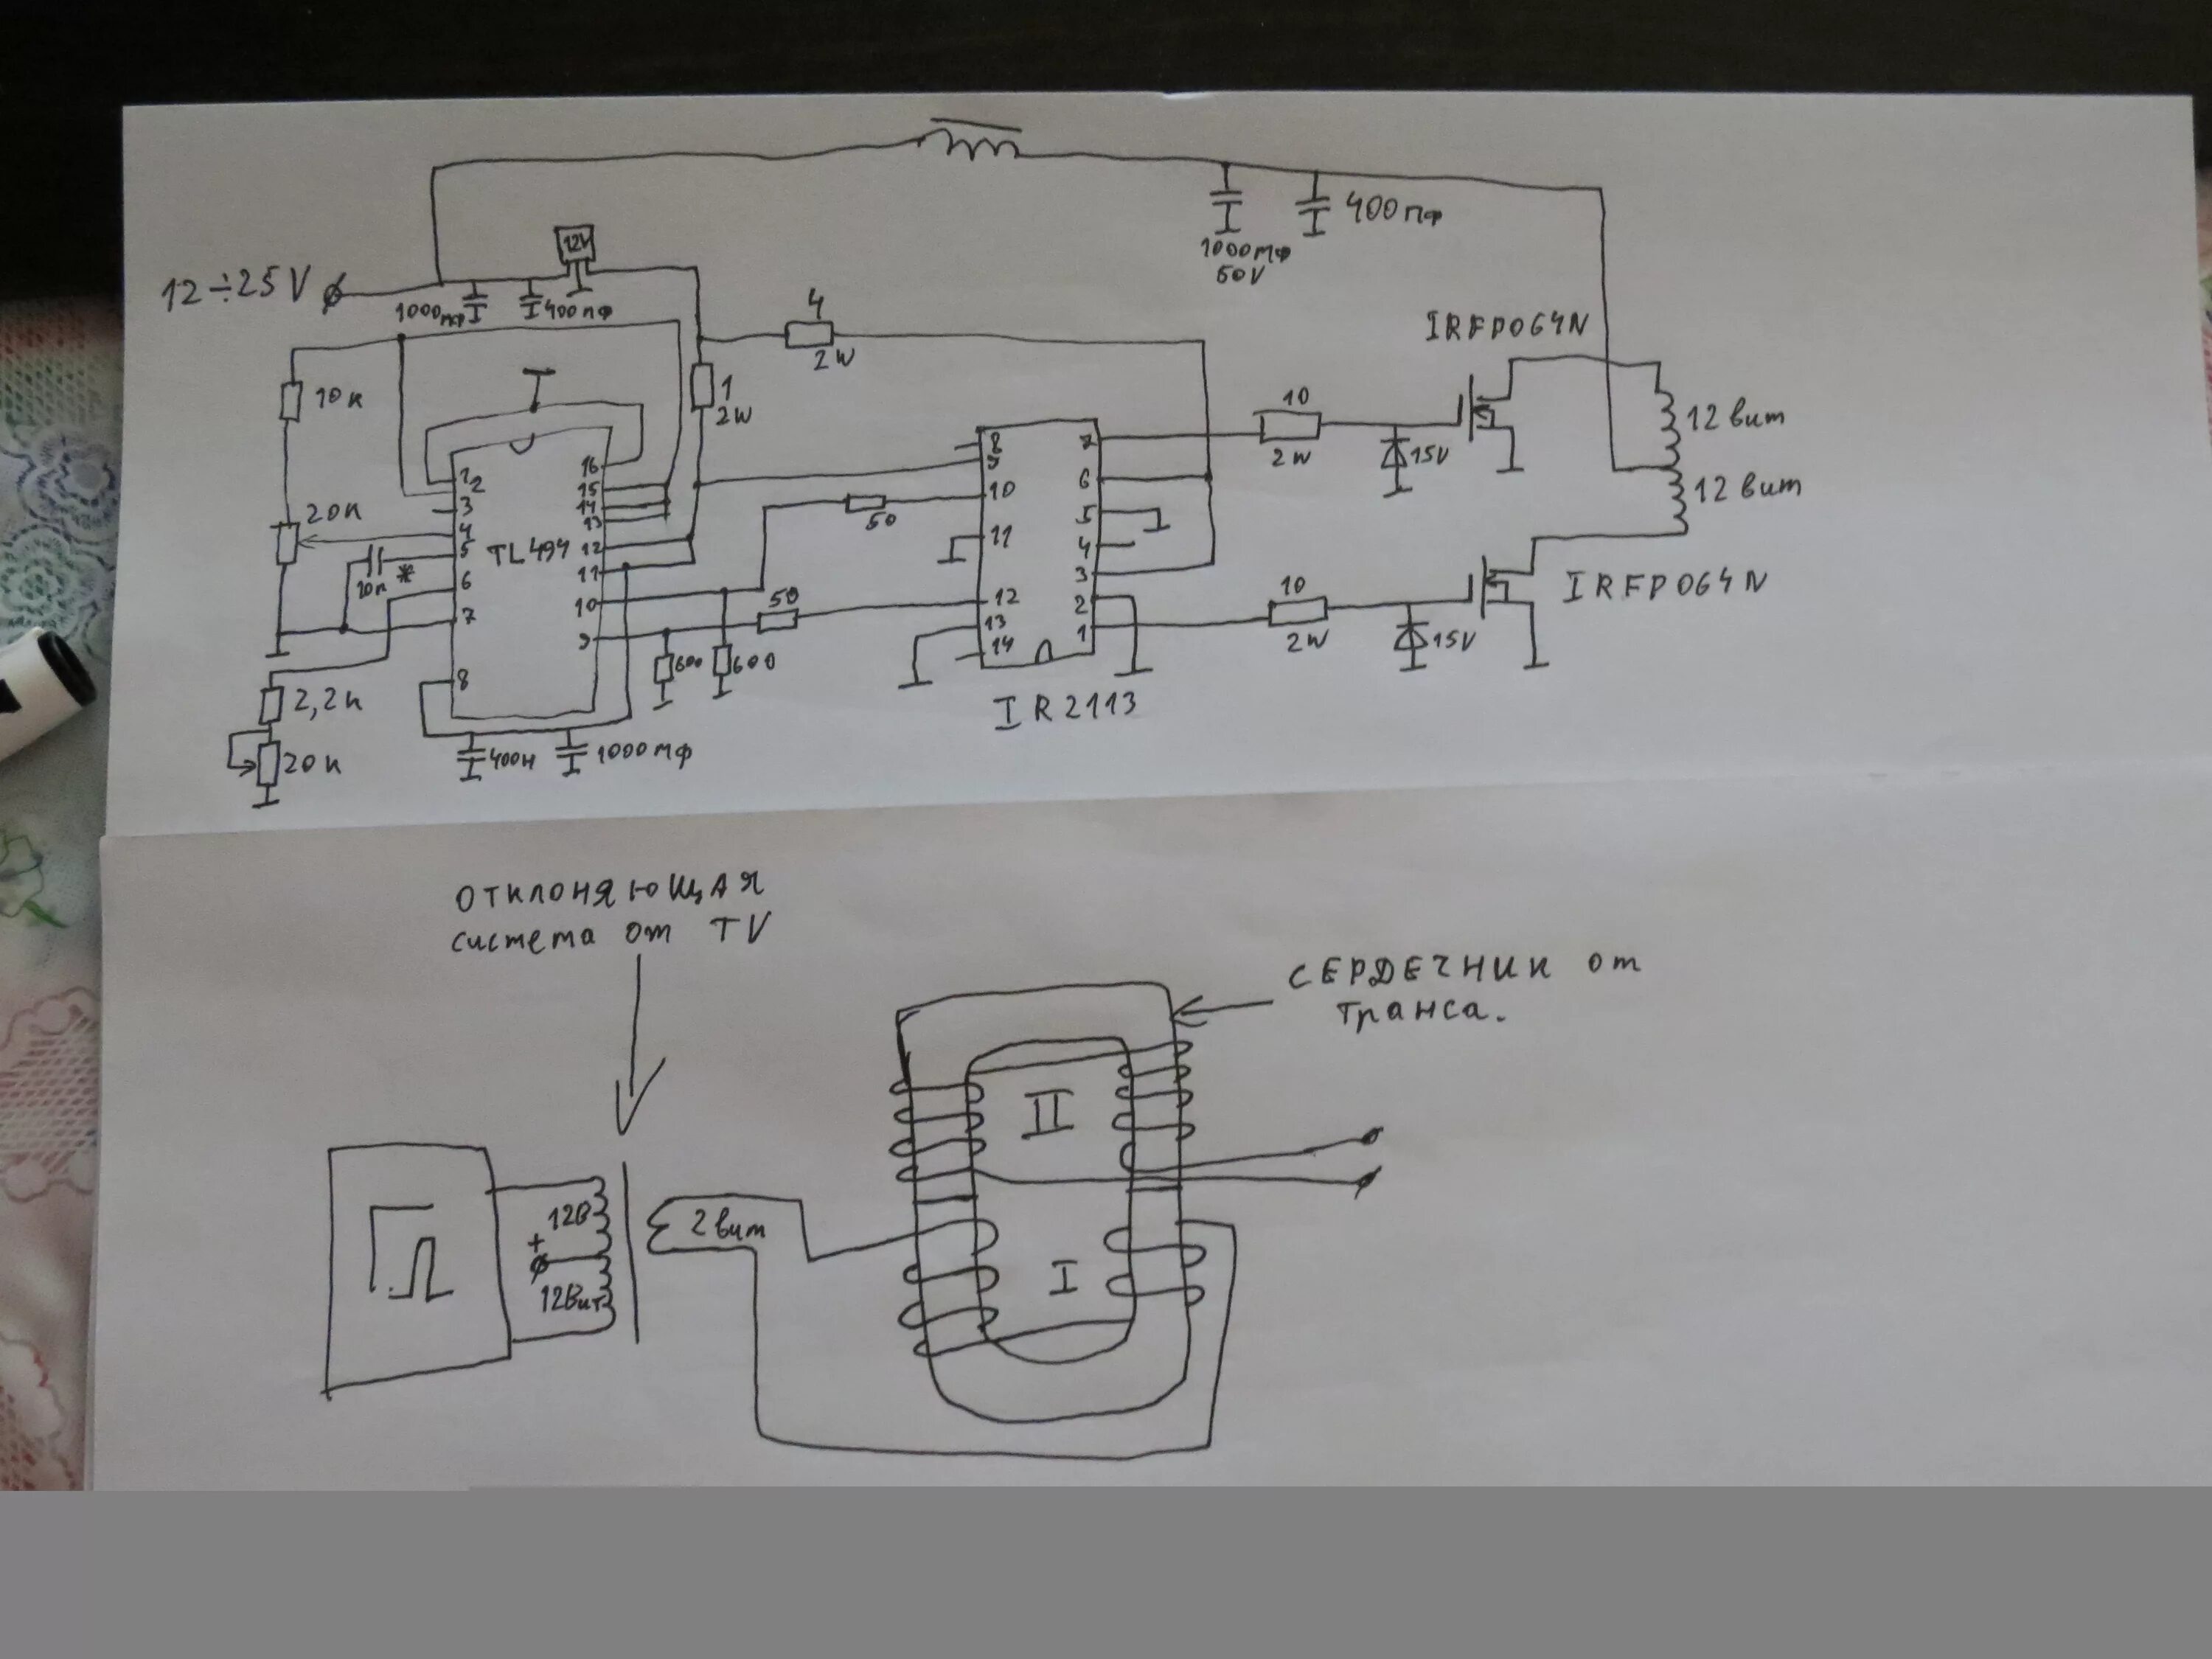 12÷25V
1000мф
400пф
12V
1000мф
50V
400пф
4
2W
1
2W
10к
20к
10n
*
2,2к
20к
TL494
1
2
3
4
5
6
7
8
16
15
14
13
12
11
10
9
400н
1000мф
600
600
50
50
8
9
10
11
12
13
14
7
6
5
4
3
2
1
IR2113
10
2W
15V
IRFP064N
12 вит
12 вит
10
2W
15V
IRFP064N
ОТКЛОНЯЮЩАЯ
система от TV
СЕРДЕЧНИК от
Транса.
12В
+
12Вит
2 вит
II
I